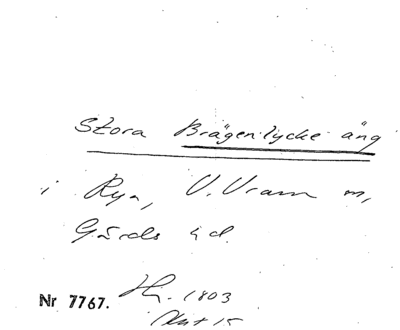 Stora Brägenlycke äng
i Rya, V. Vram m,
Gärds hd.
Nr 7767. Hr. 1803